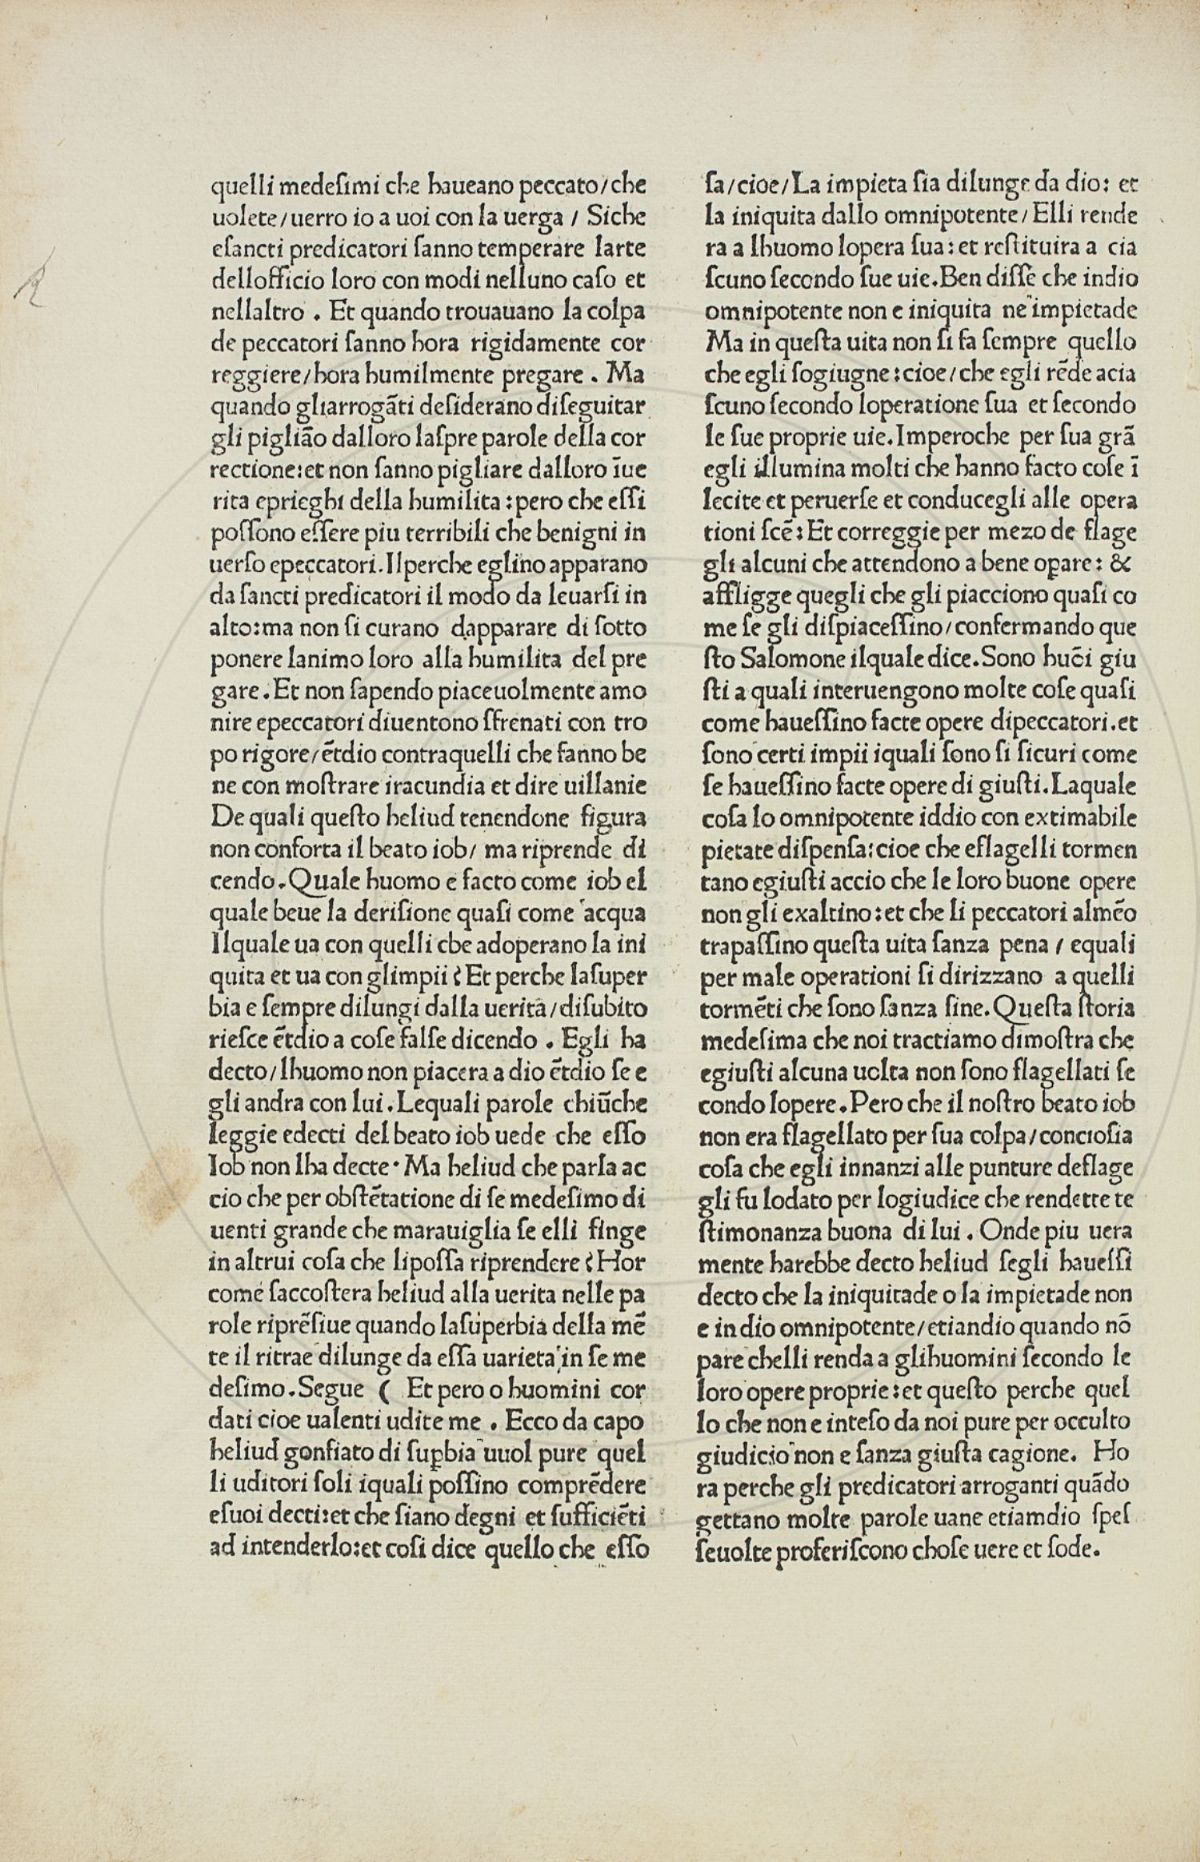 quelli medeſimi che haueano peccato/che
uolete/uerro io a uoi con la uerga / Siche
eſancti predicatori ſanno temperare larte
dellofficio loro con modi nelluno caſo et
nellaltro . Et quando trouauano la colpa
de peccatori ſanno hora rigidamente cor
reggiere/hora humilmente pregare . Ma
quando gliarrogāti deſiderano diſeguitar
gli pigliāo dalloro laſpre parole della cor
rectione:et non ſanno pigliare dalloro īue
rita eprieghi della humilita :pero che eſſi
poſſono eſſere piu terribili che benigni in
uerſo epeccatori.Ilperche eglino apparano
da ſancti predicatori il modo da leuarſi in
alto:ma non ſi curano dapparare di ſotto
ponere lanimo loro alla humilita del pre
gare.Et non ſapendo piaceuolmente amo
nire epeccatori diuentono sfrenati con tro
po rigore/ētdio contraquelli che fanno be
ne con moſtrare iracundia et dire uillanie
De quali queſto heliud tenendone figura
non conforta il beato iob/ ma riprende di
cendo.Quale huomo e facto come iob el
quale beue la deriſione quaſi come acqua
Ilquale ua con quelli che adoperano la ini
quita et ua con glimpii? Et perche laſuper
bia e ſempre dilungi dalla uerita/diſubito
rieſce ētdio a coſe falſe dicendo . Egli ha
decto/lhuomo non piacera a dio ētdio ſe e
gli andra con lui.Lequali parole chiūche
leggie edecti del beato iob uede che eſſo
Iob non lha decte. Ma heliud che parla ac
cio che per obſtētatione di ſe medeſimo di
uenti grande che marauiglia ſe elli finge
in altrui coſa che lipoſſa riprendere? Hor
come ſaccoſtera heliud alla uerita nelle pa
role riprēſiue quando laſuperbia della mē
te il ritrae dilunge da eſſa uarieta in ſe me
deſimo.Segue ( Et pero o huomini cor
dati cioe ualenti udite me . Ecco da capo
heliud gonfiato di ſuꝑbia uuol pure quel
li uditori ſoli iquali poſſino comprēdere
eſuoi decti:et che ſiano degni et ſufficiēti
ad intenderlo:et coſi dice quello che eſſo
ſa/cioe/La impieta ſia dilunge da dio: et
la iniquita dallo omnipotente/Elli rende
ra a lhuomo lopera ſua:et reſtituira a cia
ſcuno ſecondo ſue uie.Ben diſſe che indio
omnipotente non e iniquita ne impietade
Ma in queſta uita non ſi fa ſempre quello
che egli ſogiugne:cioe/che egli rēde acia
ſcuno ſecondo loperatione ſua et ſecondo
le ſue proprie uie.Imperoche per ſua grā
egli illumina molti che hanno facto coſe ī
lecite et peruerſe et conducegli alle opera
tioni ſcē: Et correggie per mezo de flage
gli alcuni che attendono a bene oꝑare: &
affligge quegli che gli piacciono quaſi co
me ſe gli diſpiaceſſino/confermando que
ſto Salomone ilquale dice.Sono huōi giu
ſti a quali interuengono molte coſe quaſi
come haueſſino facte opere dipeccatori.et
ſono certi impii iquali ſono ſi ſicuri come
ſe haueſſino facte opere di giuſti.Laquale
coſa lo omnipotente iddio con extimabile
pietate diſpenſa:cioe che eflagelli tormen
tano egiuſti accio che le loro buone opere
non gli exaltino:et che li peccatori almēo
trapaſſino queſta uita ſanza pena / equali
per male operationi ſi dirizzano a quelli
tormēti che ſono ſanza fine.Queſta ſtoria
medeſima che noi tractiamo dimoſtra che
egiuſti alcuna uolta non ſono flagellati ſe
condo lopere.Pero che il noſtro beato iob
non era flagellato per ſua colpa/concioſia
coſa che egli innanzi alle punture deflage
gli fu lodato per logiudice che rendette te
ſtimonanza buona di lui . Onde piu uera
mente harebbe decto heliud ſegli haueſſi
decto che la iniquitade o la impietade non
e in dio omnipotente/etiandio quando nō
pare chelli renda a glihuomini ſecondo le
loro opere proprie:et queſto perche quel
lo che non e inteſo da noi pure per occulto
giudicio non e ſanza giuſta cagione. Ho
ra perche gli predicatori arroganti quādo
gettano molte parole uane etiamdio ſpeſ
ſeuolte proferiſcono choſe uere et ſode.